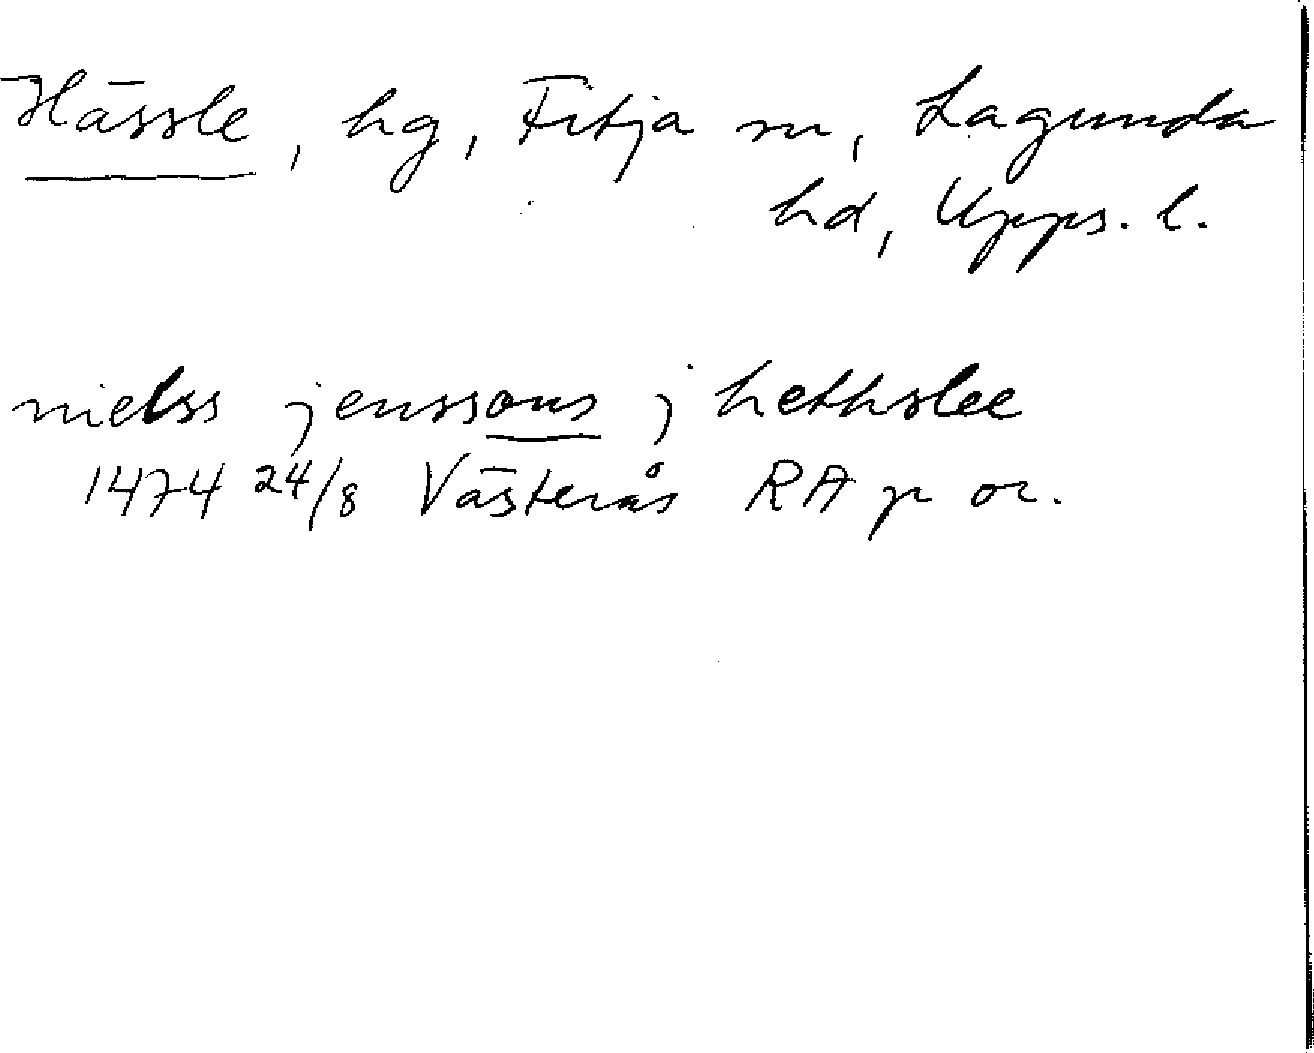 Hässle, hg, Fitja sn, Lagunda
hd, Upps. l.
nielss jenssons j hethslee
1474 24/8 Västerås RA p or.